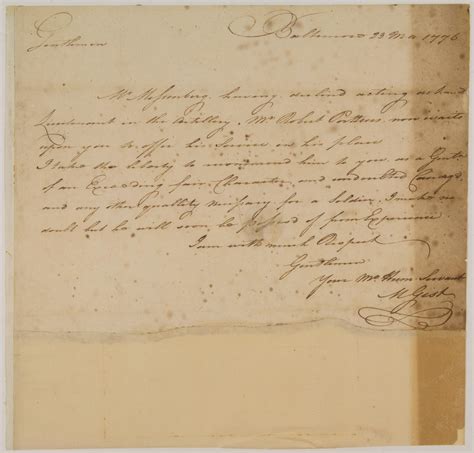 Baltimore 23 Ma 1776
Gentlemen
Mr. having declind acting as
Lieutenant in the Artillery, Mr. Robert now waits
upon you to offer his Service in his place
I take the liberty to recommend him to you as a Gentn.
of an Exceeding fair Character and undoubted Courage
and any other quallity necessary for a Soldier. I make no
doubt but he will soon be possesed of from Experience
I am with much Respect
Gentlemen
Your Mo. Hum Servant
M Gist